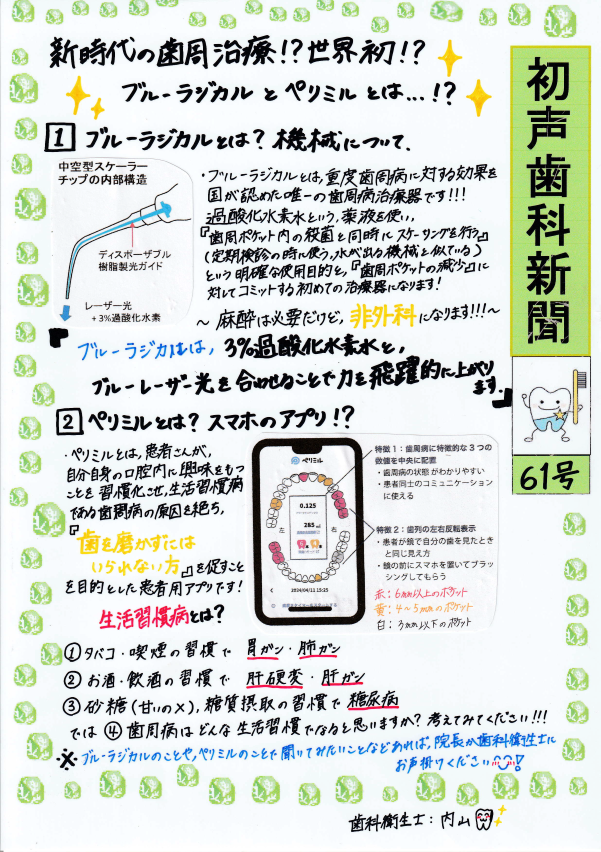 新時代の歯周治療!?世界初!?
ブルーラジカルとペリミルとは…!?
初声歯科新聞
61号
1 ブルーラジカルとは?機械について、
中空型スケーラー
チップの内部構造
ディスポーザブル
樹脂製光ガイド
レーザー光
+3%過酸化水素
・ブルーラジカルとは、重度歯周病に対する効果を
国が認めた唯一の歯周病治療器です!!!
過酸化水素水という、薬液を使い、
『歯周ポケット内の殺菌と同時にスケーリングを行う』
(定期検診の時に使う、水が出る機械と似ている)
という明確な使用目的と、『歯周ポケットの減少』に
対してコミットする初めての治療器になります!
~麻酔は必要だけど、非外科になります!!!~
『ブルーラジカルは、3%過酸化水素水と、
ブルーレーザー光を合わせることで力を飛躍的に上がります。』
2 ペリミルとは?スマホのアプリ!?
・ペリミルとは、患者さんが、
自分自身の口腔内に興味をもつ
ことを習慣化させ、生活習慣病
である歯周病の原因を絶ち、
『歯を磨かずには
いられない方』を促すこと
を目的とした患者用アプリです!
ペリミル
0.125
285
左
右
2024/04/11 15:25
特徴1:歯周病に特徴的な3つの
数値を中央に配置
・歯周病の状態がわかりやすい
・患者同士のコミュニケーション
に使える
特徴2:歯列の左右反転表示
・患者が鏡で自分の歯を見たとき
と同じ見え方
・鏡の前にスマホを置いてブラッ
シングしてもらう
赤:6mm以上のポケット
黄:4~5mmのポケット
白:3mm以下のポケット
生活習慣病とは?
①タバコ・喫煙の習慣で 胃ガン・肺ガン
②お酒・飲酒の習慣で 肝硬変・肝ガン
③砂糖(甘いの×)、糖質摂取の習慣で糖尿病
では④歯周病はどんな生活習慣でなると思いますか?考えてみてください!!!
※ブルーラジカルのことや、ペリミルのことで聞いてみたいことなどあれば、院長か歯科衛生士に
お声掛けください!
歯科衛生士:内山